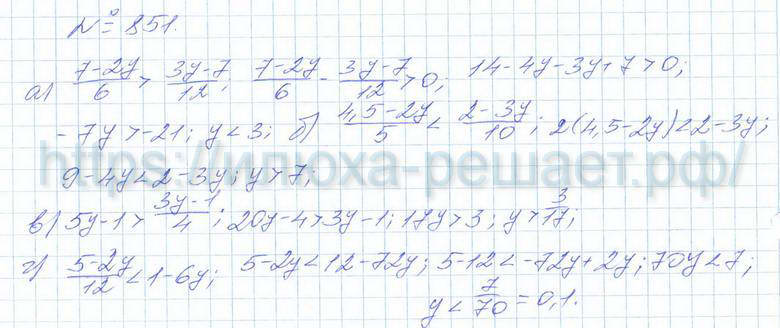 № 851.
а) (7-2y)/6 > (3y-7)/12; (7-2y)/6 - (3y-7)/12 > 0; 14-4y-3y+7>0;
-7y>-21; y<3; б) (4,5-2y)/5 < (2-3y)/10; 2(4,5-2y)<2-3y;
https://илюха-решает.рф/
9-4y<2-3y; y>7;
в) 5y-1 > (3y-1)/4; 20y-4>3y-1; 17y>3; y > 3/17;
г) (5-2y)/12 < 1-6y; 5-2y<12-72y; 5-12<-72y+2y; 70y<7;
y < 7/70 = 0,1.